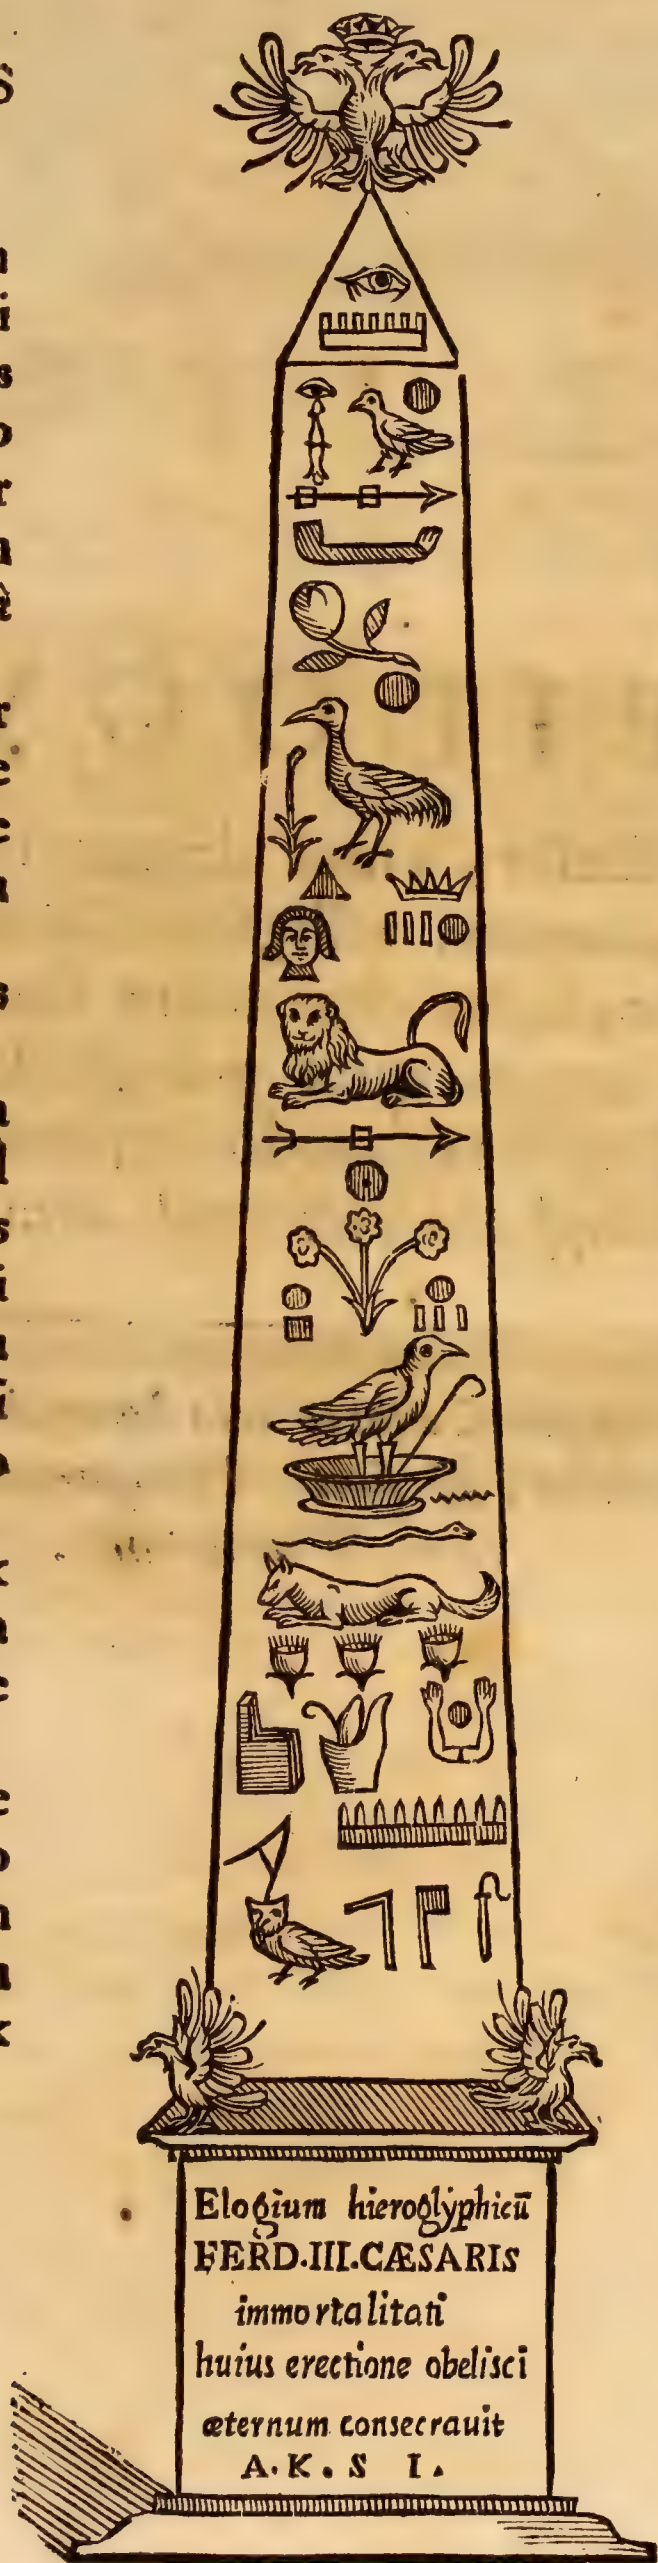 Elogium hieroglyphicū
FERD.III.CÆSARIS
immortalitati
huius erectione obelisci
æternum consecrauit
A. K. S I.